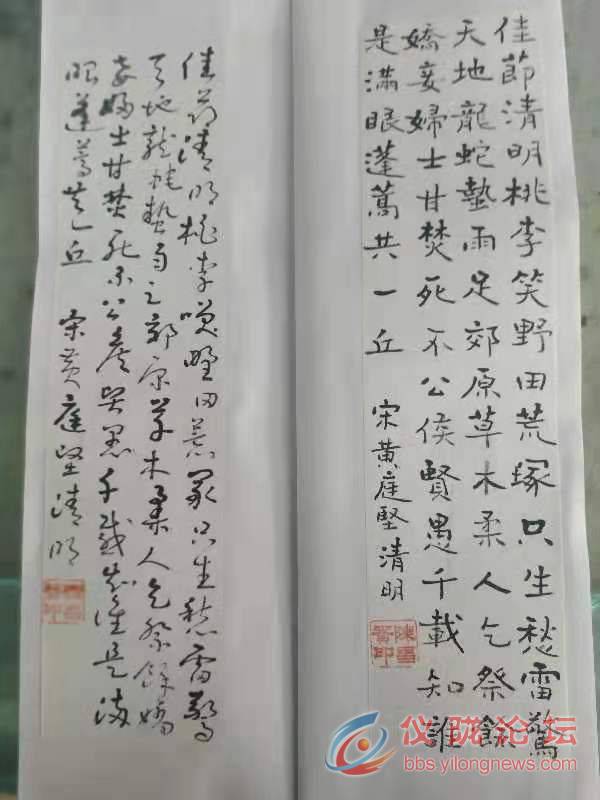 佳節清明桃李笑野田荒塚只生愁雷驚
天地龍蛇蟄雨足郊原草木柔人乞祭餘
嬌妾婦士甘焚死不公侯賢愚千載知誰
是滿眼蓬蒿共一丘 宋黃庭堅清明
佳節清明桃李笑野田荒冢只生愁雷驚
天地龍蛇蟄雨足郊原草木柔人乞祭餘嬌
妾婦士甘焚死不公侯賢愚千載知誰是滿
眼蓬蒿共一丘 宋黃庭堅清明
仪陇论坛
bbs.yilongnews.com